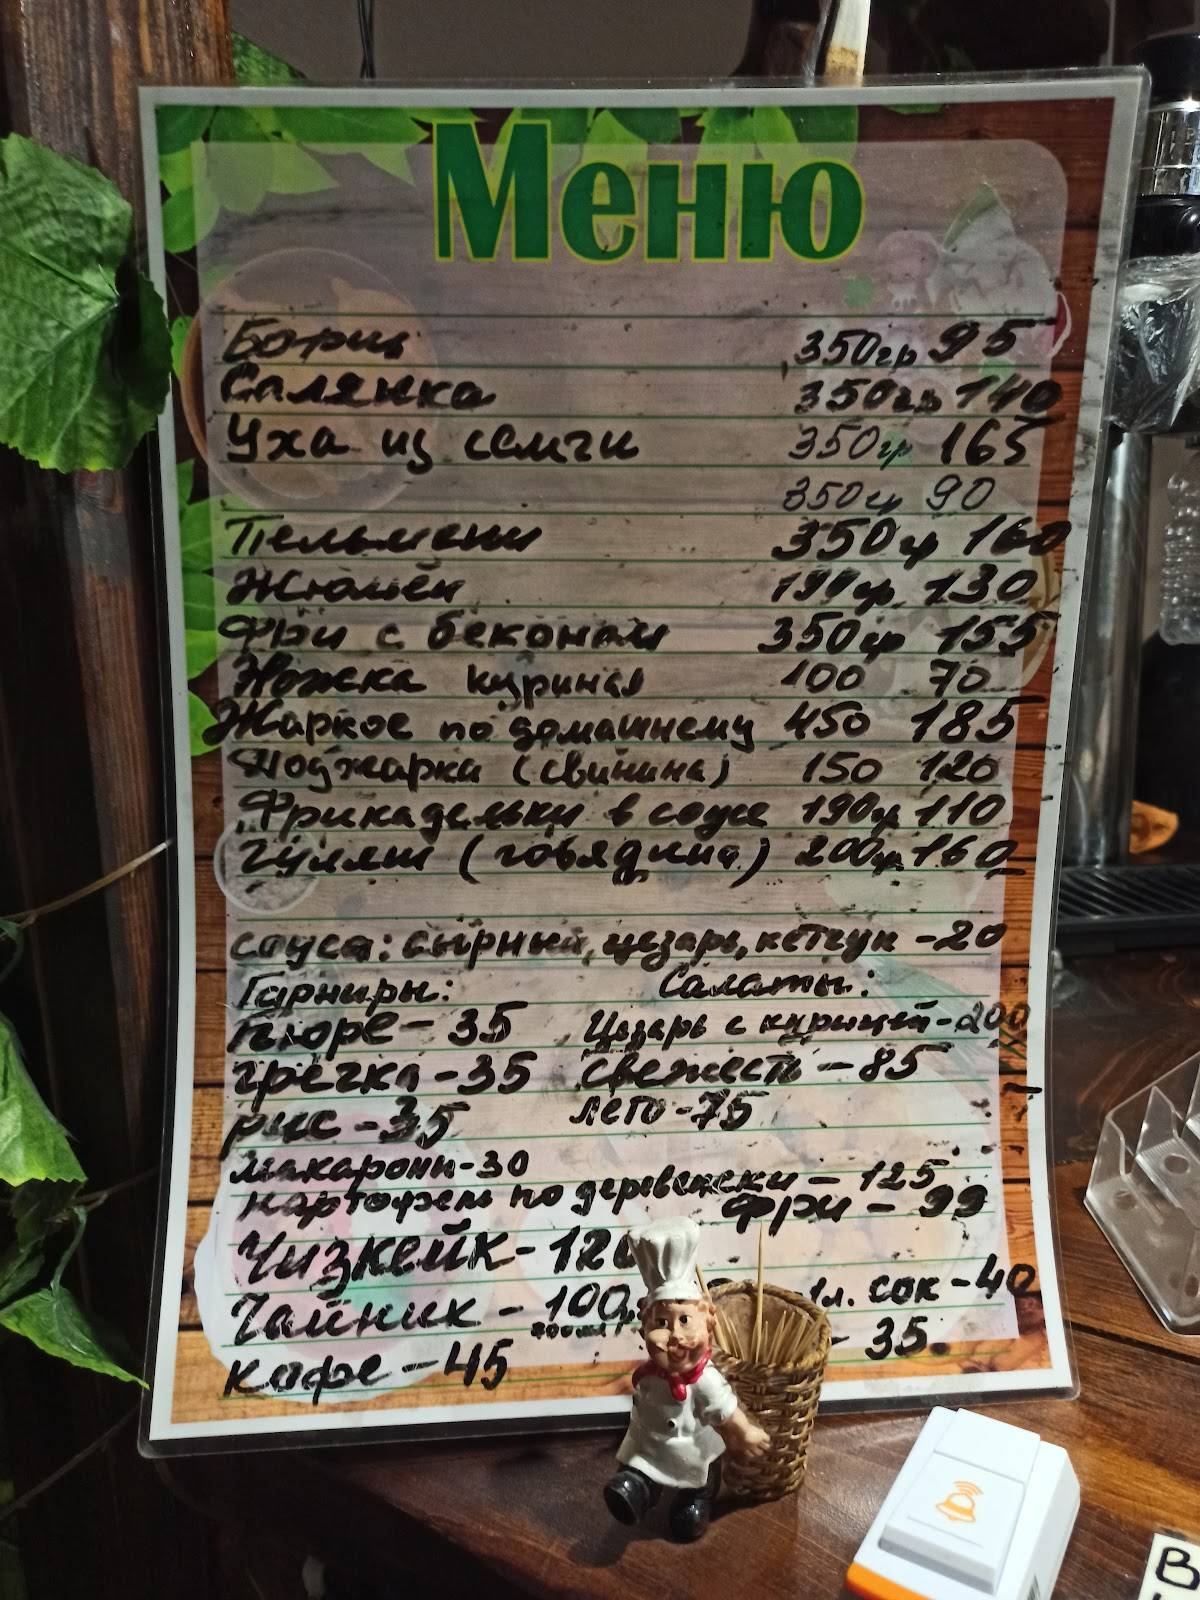 Меню
Борщ 350гр 95
Салянка 350гр 140
Уха из семги 350гр 165
350гр 90
Пельмени 350гр 160
Жюльен 190гр 130
Фри с беконом 350гр 155
Ножка куриная 100 70
Жаркое по домашнему 450 185
Поджарка (свинина) 150 120
Фрикадельки в соусе 190гр 110
Гуляш (говядина) 200гр 160
соуса: сырный, цезарь, кетчуп - 20
Гарниры: Салаты:
Пюре - 35 Цезарь с курицей - 200
гречка - 35 свежесть - 85
рис - 35 лето - 75
макарони - 30
картофель по деревенски - 125
фри - 99
Чизкейк - 120
Чайник - 100 1л. сок - 40
кофе - 45 - 35.
В